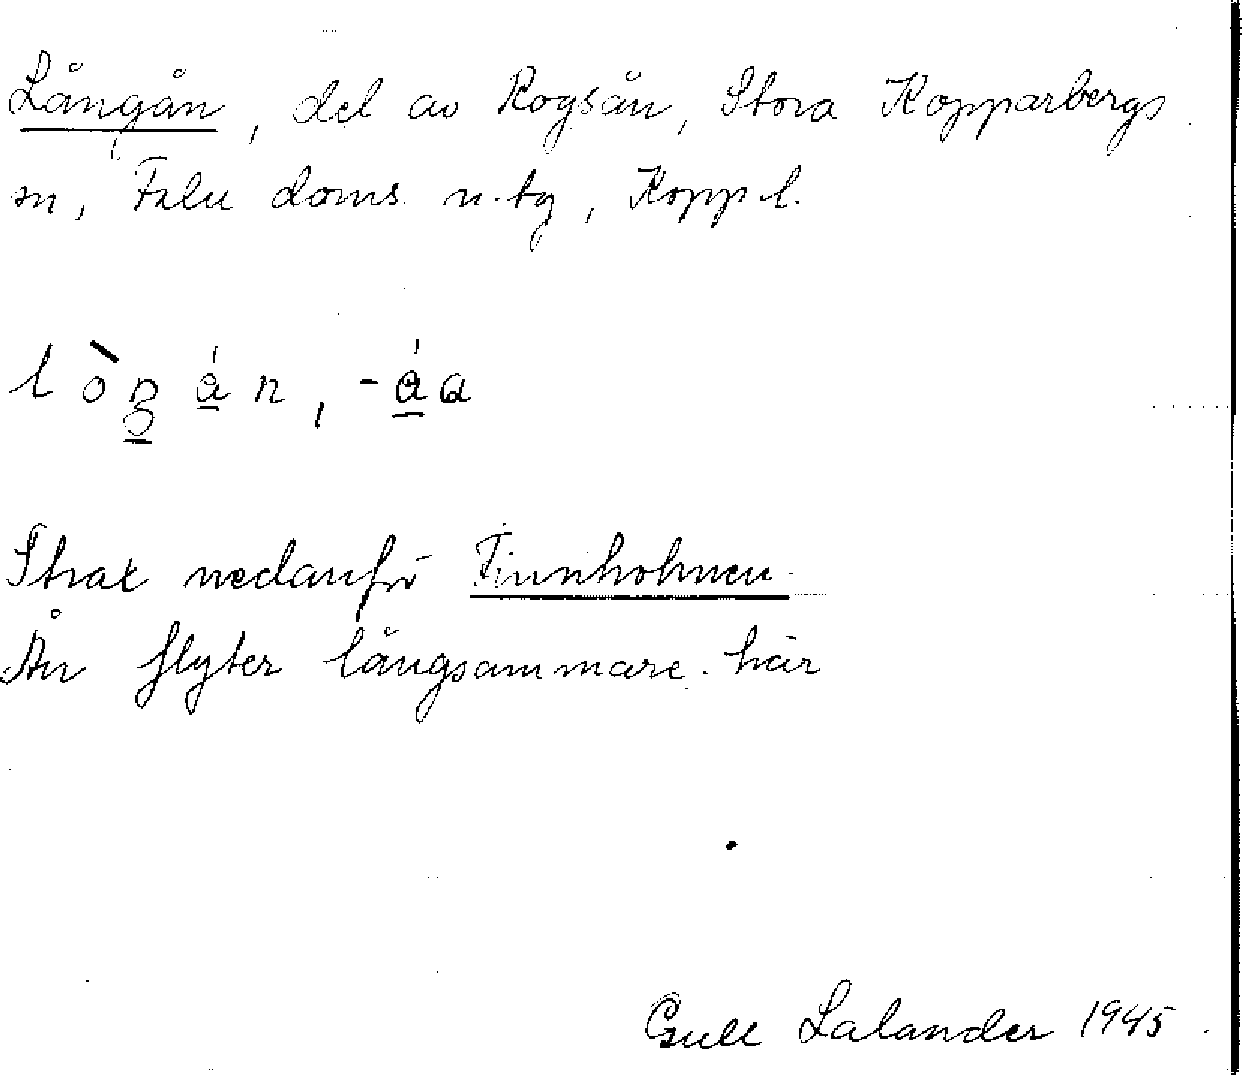 Långån, del av Rogsån, Stora Kopparbergs
sn, Falu doms. n. tg, Kopp. l.
Strax nedanför Finnholmen.
Ån flyter långsammare här
Gull Lalander 1945.